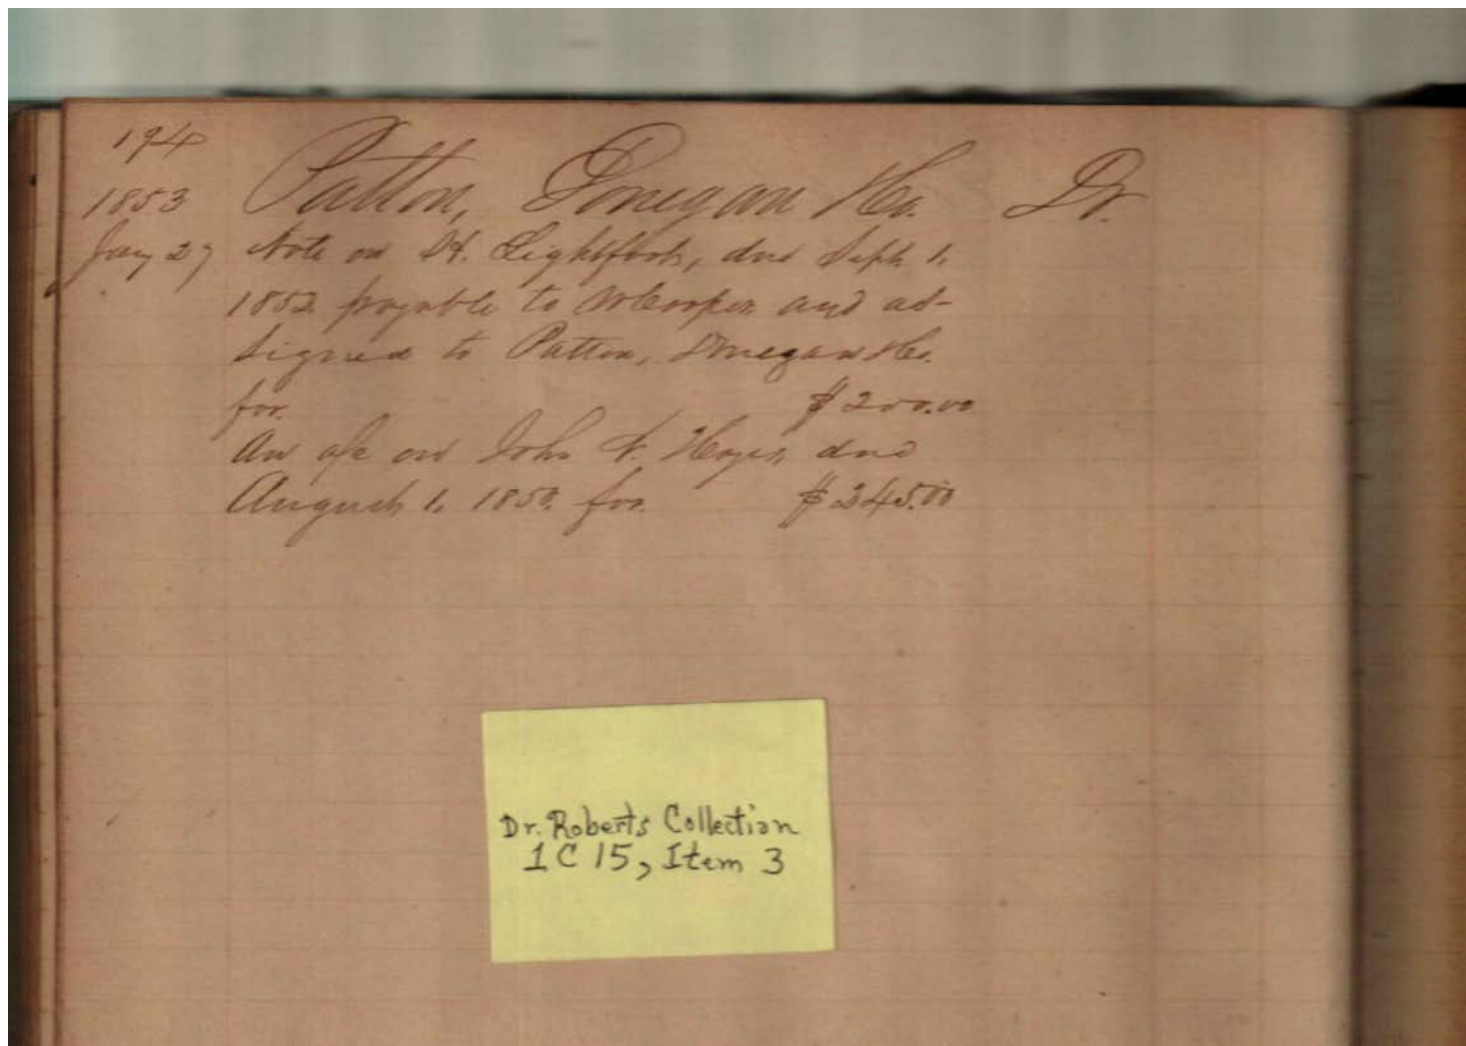 194
1853 Patton, Donegan & Co. Dr.
Jany 27 Note on Lightfoot, due Sept. 1,
1852 payable to and as-
signed to Patton, Donegan & Co.
for $200.00
An a/c on John Hayes, due
August 1, 1850 for $345.00
Dr. Roberts Collection
1C15, Item 3